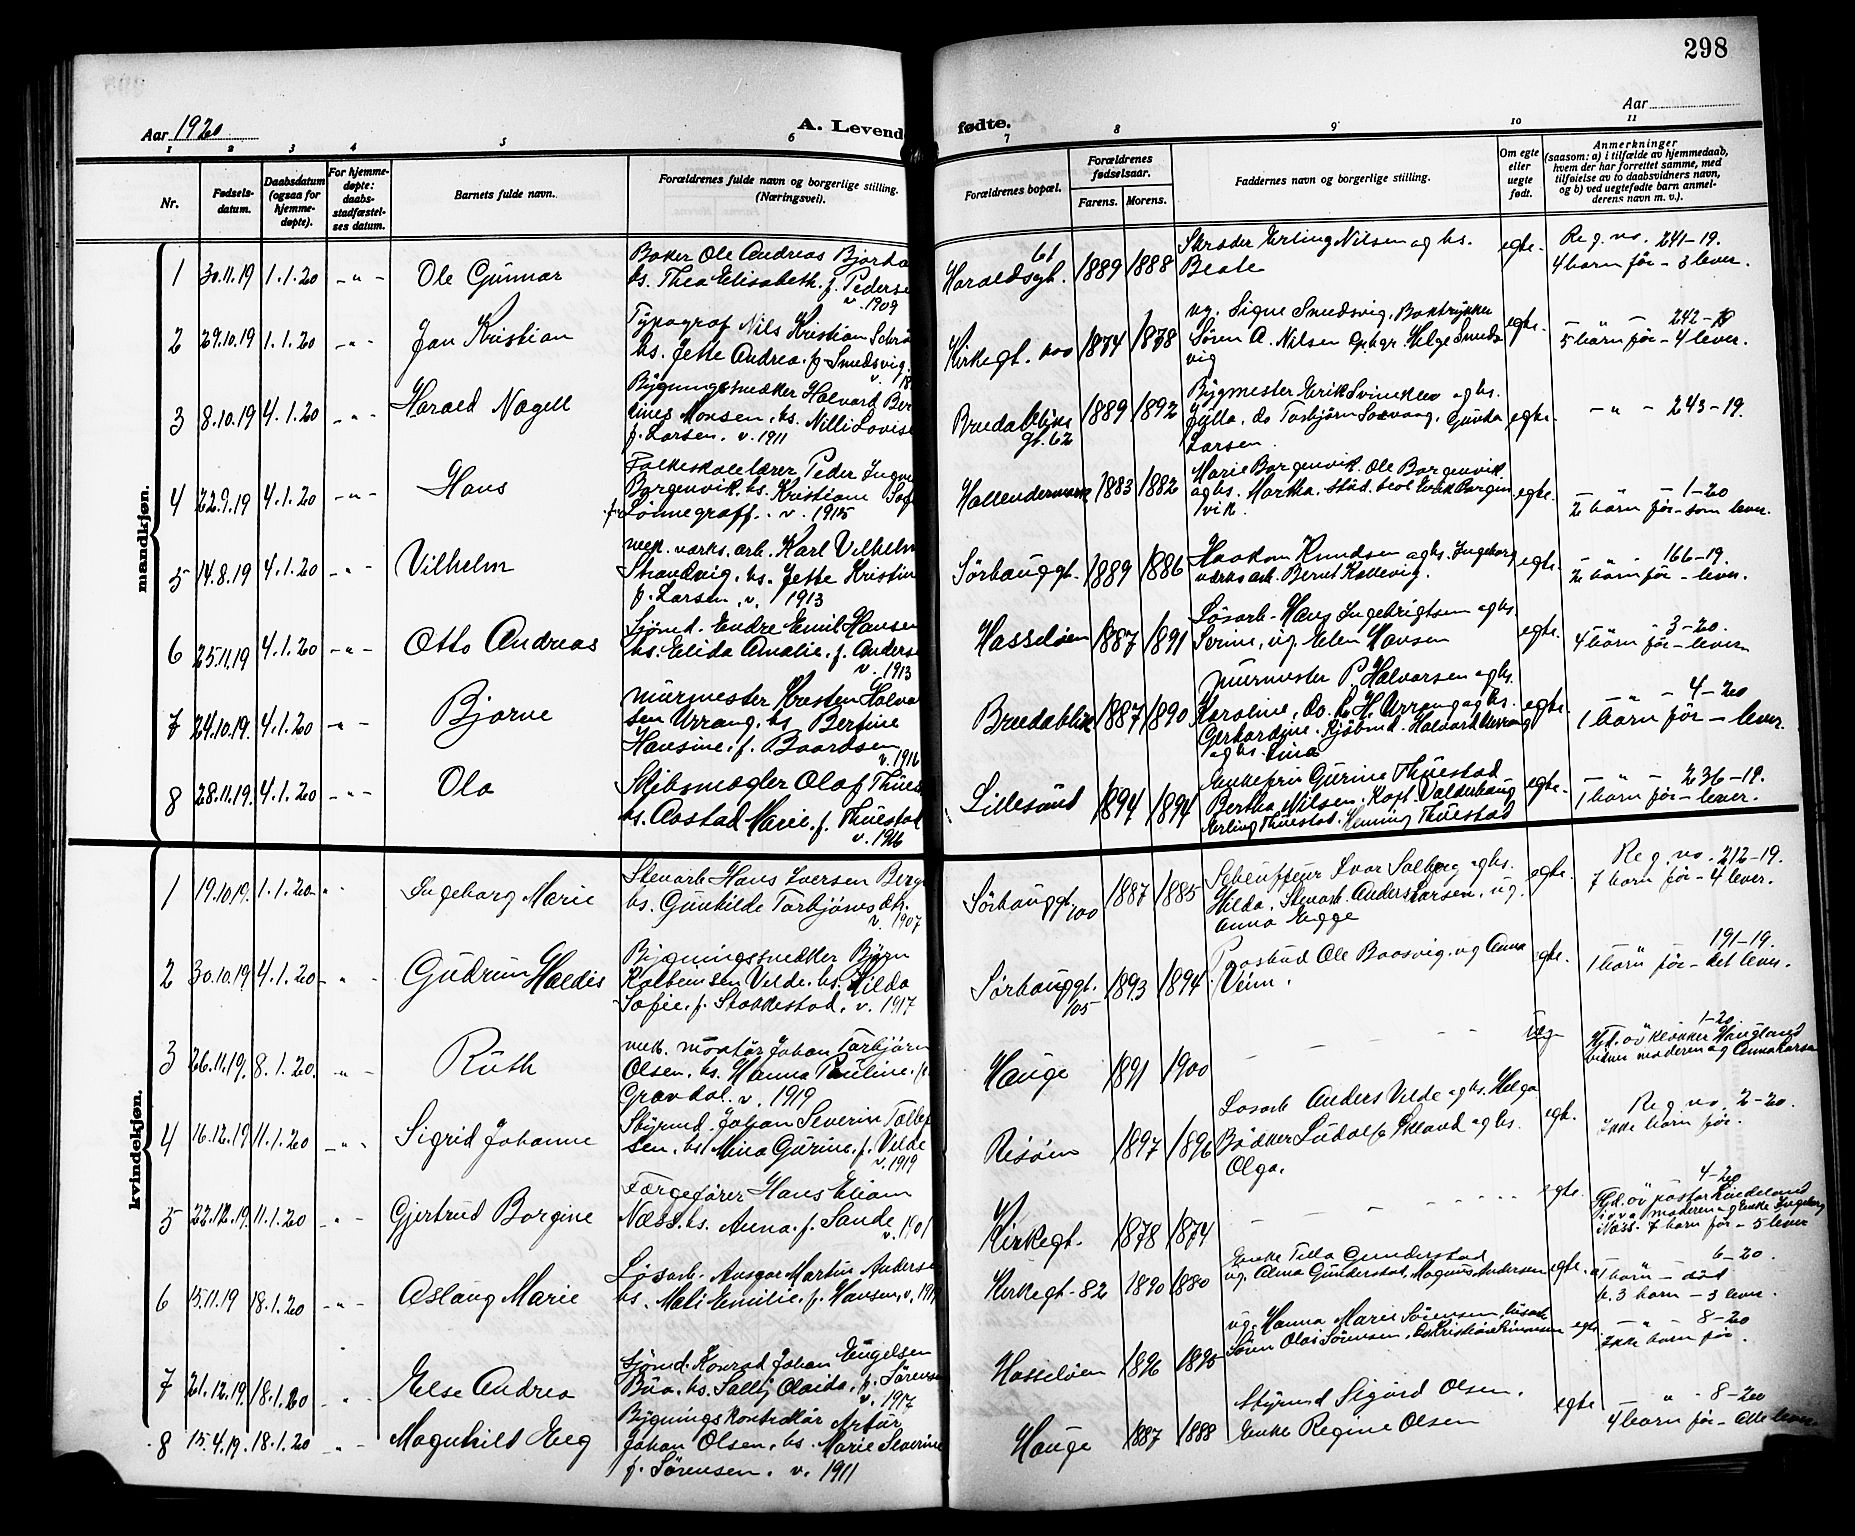 298
Aar 1920
A. Levende fødte.
Aar
1 2 3 4 5 6 7 8 9 10 11
Nr.
Fødsels-
datum.
Daabsdatum
(ogsaa for
hjemme-
døpte).
For hjemme-
døpte:
daabs-
stadfæstel-
ses datum.
Barnets fulde navn.
Forældrenes fulde navn og borgerlige stilling.
(Næringsvei).
Forældrenes bopæl.
Forældrenes
fødselsaar.
Farens. Morens.
Faddernes navn og borgerlige stilling.
Om egte
eller
uegte
født.
Anmerkninger
(saasom: a) i tilfælde av hjemmedaab,
hvem der har forrettet samme, med
tilføielse av to daabsvidners navn,
og b) ved uegtefødte barn anmel-
derens navn m. v.).
mandkjøn.
1 30.11.19 1.1.20 -"- Ole Gunnar
Baker Ole Andreas
hs. Thea Elisabeth. f. Pederse
v. 1909
Haraldsgt. 61 1889 1888
Skræder Erling Nilsen og hs.
Beate
egte.
Reg. no. 241-19.
4 barn før - 3 lever.
2 29.10.19 1.1.20 -"- Jan Kristian
Typograf Nils Kristian Schrö
hs. Jette Andrea. f. Smedsvig.
Kirkegt. 100 1874 1878
ug. Signe Smedsvig, Boktrykker
Søren A. Nilsen Gphgr. Helge Smeds
vig
egte.
- " - 242-19
5 barn før - 4 lever.
3 8.10.19 4.1.20 -"- Harald Nagell
Bygningssnedker Halvard Ber
tines Monsen. hs. Nilli Lovise
f. Larsen. v. 1911
Breidabliks
gt. 62 1889 1892
Bygmester Erik Svineklev og hs.
Julla, do Torbjørn
Larsen
egte.
- " - 243-19.
4 22.9.19 4.1.20 -"- Hans
Folkeskolelærer Peder Ingve
Borgenvik. hs. Kristiane Sof
f. Lønnegraff. v. 1915
1883 1882
Marie Borgenvik. Ole Borgenvik
og hs. Martha. stud. teol Erik Borgen
vik.
egte.
- " - 1-20
2 barn før - som lever.
5 14.8.19 4.1.20 -"- Vilhelm
mek. værks. arb. Karl Vilhelm
Strandvig. hs. Jette Kristin
f. Larsen. v. 1913
Sørhauggt. 1889 1886
Haakon Knudsen og hs. Ingeborg
værks arb. Bernt Kallevig.
egte.
- " - 166-19.
2 barn før - lever.
6 25.11.19 4.1.20 -"- Otto Andreas
Sjømd. Endre Emil Hansen
hs. Elida Amalie. f. Anderse
v. 1913
Hasseløen 1887 1891
Løsarb. Hans Ingebrigtsen og hs.
Serine, ug. Elen Hansen
egte.
- " - 3-20.
4 barn før - lever
7 24.10.19. 4.1.20 -"- Bjarne
murmester Kresten Halva
sen Urrang. hs Bertine
Hansine. f. Baardsen
v. 1916
Breidablik 1887 1890
murmester P. Halvorsen og hs.
Karoline, do. H. Urrang og hs.
Gerhardine. Kjøbmd. Halvard Urrang
og hs. Lina
egte.
- " - 4-20
1 barn før - lever.
8 28.11.19. 4.1.20 -"- Ola
Skibsmægler Olaf Thues
hs. Aastad Marie. f. Thuestad
v. 1916
Lillesund 1894 1894
Enkefru Gurine Thuestad
Bertha Nilsen. Kapt. Valderhaug
Erling Thuestad. Henning Thuestad
egte.
- " - 236-19.
1 barn før - lever.
kvindekjøn.
1 19.10.19. 1.1.20 "- Ingeborg Marie
Stenarb Hans Iversen Berge
hs. Gunhilde Torbjørnsdtr.
v. 1907
Sørhauggt.
100 1887 1885
Schauffeur Ivar Solberg og hs.
Hilda. Stenarb. Anders Larsen, ug.
Anna Egge
egte.
Reg. no. 212-19.
7 barn før - 4 lever.
2 30.10.19 4.1.20 -"- Gudrun Haldis
Bygningssnedker Bjørn
Kolbeinsen Velde. hs. Hilda
Sofie. f. Stakkestad. v. 1917
Sørhauggt.
105 1893 1894
Postbud Ole Baasvig. ug Anna
Veim.
egte.
191-19.
1 barn før - det lever.
3 26.11.19. 8.1.20. -"- Ruth
mek. montør Johan Torbjørn
Olsen. hs. Hanna Pauline. f.
Gravdal. v. 1919
Hauge 1891 1900
- - - -
1-20.
Hjd. av klokker Haugland
vidner moderen og Anna Larse
4 16.12.19 11.1.20 -"- Sigrid Johanne
Styrmd. Johan Severin Tolle
sen. hs. Mina Gurine. f. Velde
v. 1919
Risøen 1897 1896
Løsarb Anders Velde og hs. Helga
Bødker Ludolf Ekland og hs.
Olga.
egte.
Reg. no. 2-20.
Ikke barn før.
5 22.12.19. 11.1.20 -"- Gjertrud Borgine
Færgefører Hans Eliam
Næss. hs. Anna. f. Sande
v. 1901
Kirkegt. 1878 1874
- - - -
egte.
4-20
Hjd. av pastor Lindeland
moderen og Enke Ingeborg
Næss. 7 barn før - 5 lever
6 15.11.19 18.1.20 -"- Aslaug Marie
Løsarb. Ansgar Martin Anderse
hs. Mali Emilie. f. Hansen, v. 191
Kirkegt. 82 1890 1880
Enke Tella Gunderstad
ug. Alma Gunderstad, Magnus Andersen
egte.
6-20.
a 1 barn - død
b. 3 barn - 3 lever.
7 21.12.19. 18.1.20 -"- Else Andrea
Sjømd. Konrad Johan Engelsen
Bua. hs. Sally Olaida. f. Sørensen
v. 1917
Hasseløen 1896 1895
ug. Hanna Marie Sørensen, løsarb
Søren Olai Sørensen,
egte.
- " - 8-20
Ikke barn før.
8 15.4.19. 18.1.20 -"- Magnhild Eeg
Bygningskontrollør Artur
Johan Olsen. hs. Marie Severine
f. Sørensen. v. 1911
Hauge 1887 1888
Styrmd Sigurd Olsen.
Enke Regine Olsen
egte
- " - 8-20
4 barn før - alle lever.